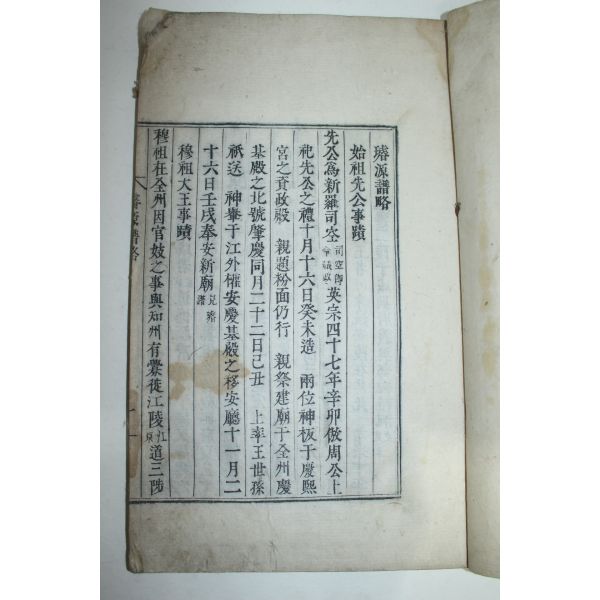 璿源譜略
始祖先公事蹟
先公爲新羅司空司空卽今議政英宗四十七年辛卯倣周公上
祀先公之禮十月十六日癸未造 兩位神板于慶熙
宮之資政殿 親題粉面仍行 親祭建廟于全州慶
基殿之北號肇慶同月二十二日己丑 上率王世孫
祇送 神輦于江外權安慶基殿之移安廳十一月二
十六日壬戌奉安新廟見璿譜
穆祖大王事蹟
穆祖在全州因官妓之事與知州有釁徙江陵江原道三陟
譜略
一